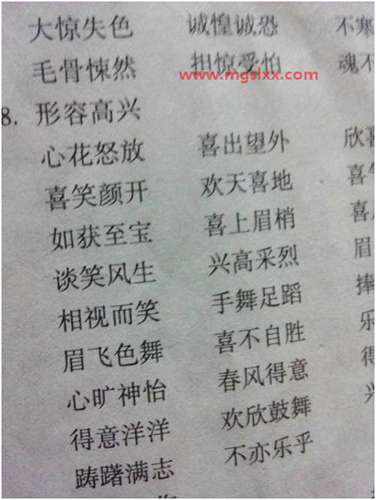 大惊失色 诚惶诚恐 不寒
毛骨悚然 担惊受怕 魂不
www.mgslxx.com
8. 形容高兴
心花怒放 喜出望外 欣喜
喜笑颜开 欢天喜地 喜
如获至宝 喜上眉梢 喜
谈笑风生 兴高采烈 眉
相视而笑 手舞足蹈 捧
眉飞色舞 喜不自胜 乐
心旷神怡 春风得意 得
得意洋洋 欢欣鼓舞 兴
踌躇满志 不亦乐乎